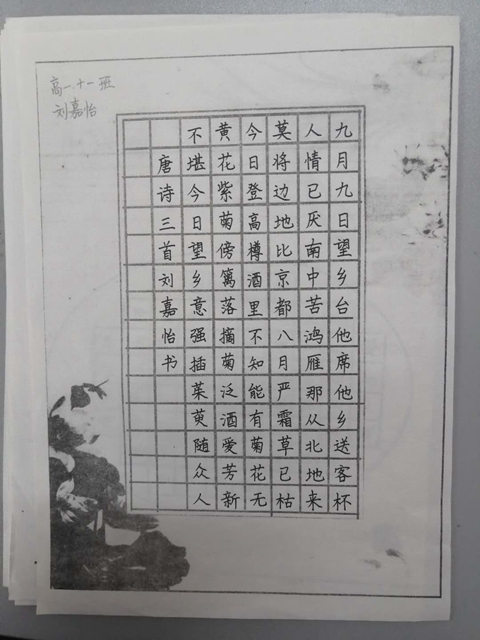 高一.十一班
刘嘉怡
九月九日望乡台他席他乡送客杯
人情已厌南中苦鸿雁那从北地来
莫将边地比京都八月严霜草已枯
今日登高樽酒里不知能有菊花无
黄花紫菊傍篱落摘菊泛酒爱芳新
不堪今日望乡意强插茱萸随众人
唐诗三首刘嘉怡书